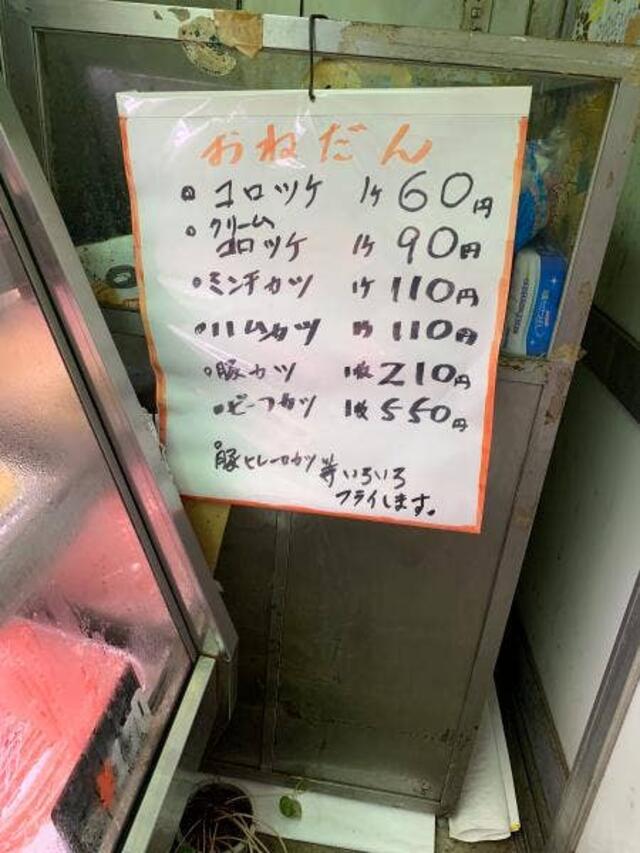 おねだん
コロッケ 1ケ 60円
クリーム
コロッケ 1ケ 90円
ミンチカツ 1ケ 110円
ハムカツ 1ケ 110円
豚カツ 1枚 210円
ビーフカツ 1枚 550円
豚ヒレーカツ等いろいろ
フライします。